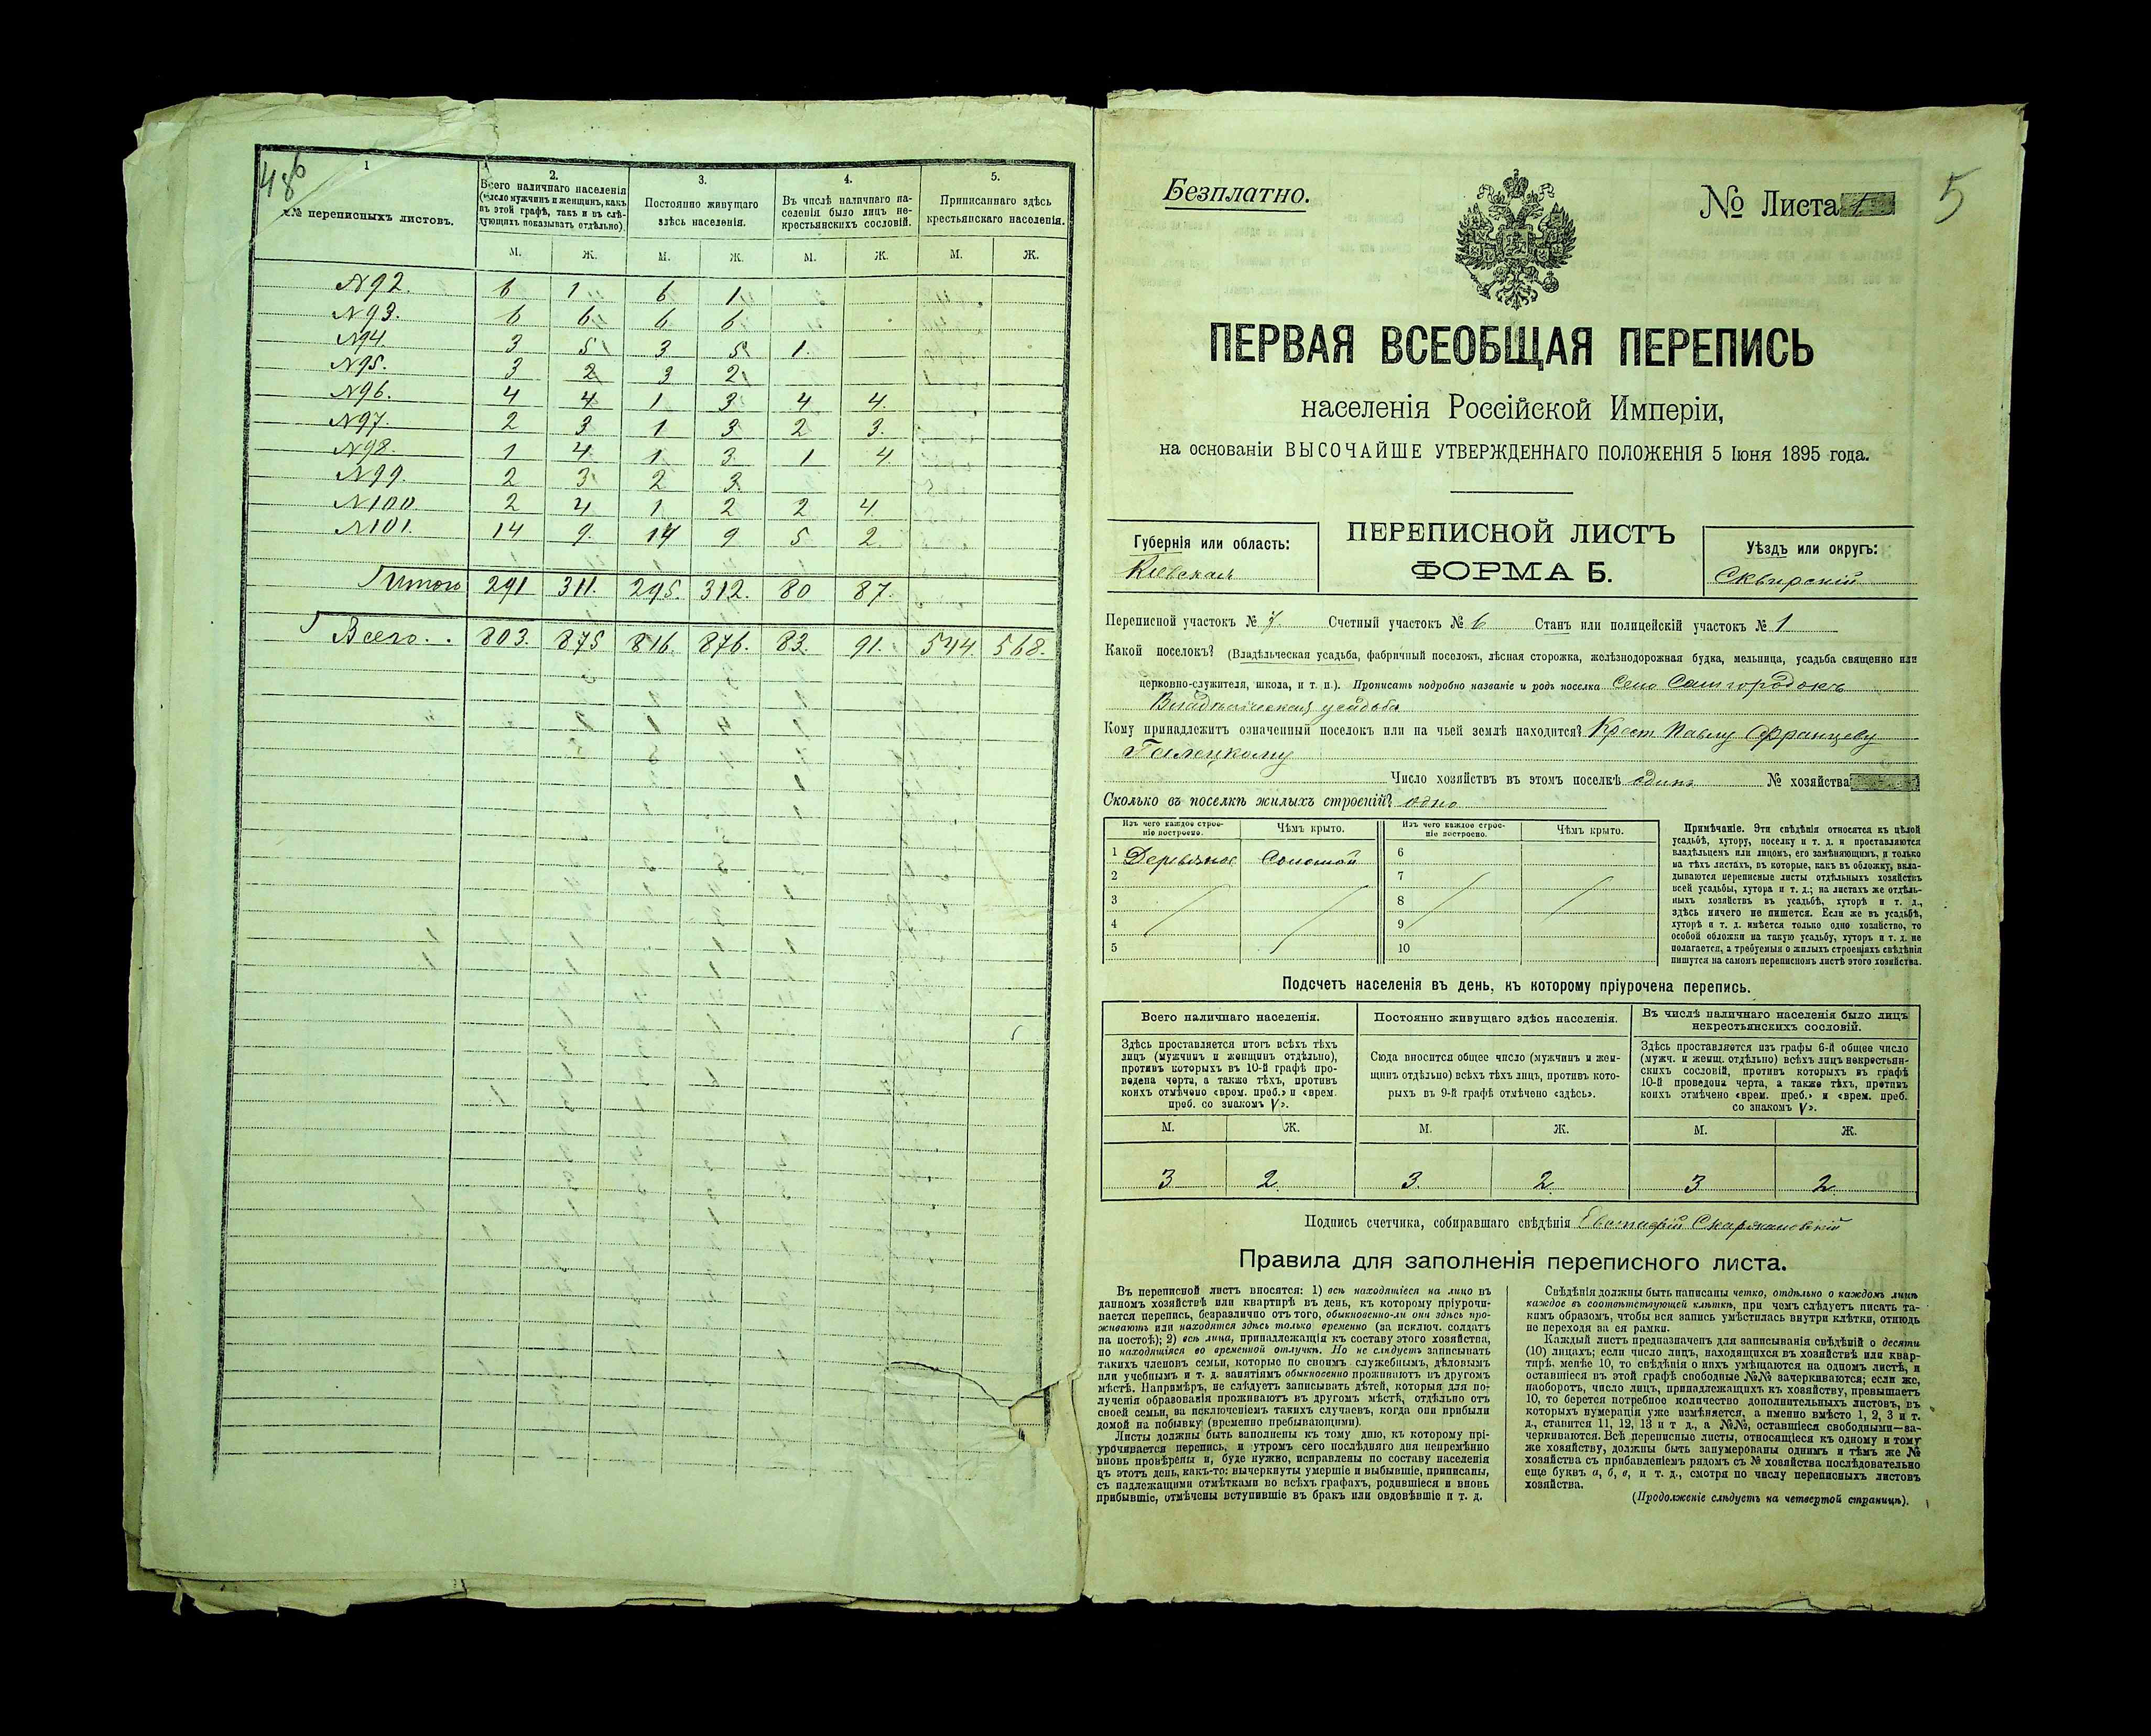 48б
1
2.
3.
4.
5.
№№ переписныхъ листовъ.
Всего наличнаго населенія
(число мужчинъ и женщинъ, какъ
въ этой графѣ, такъ и въ слѣ-
дующихъ показывать отдѣльно).
Постоянно живущаго
здѣсь населенія.
Въ числѣ наличнаго на-
селенія было лицъ не-
крестьянскихъ сословій.
Приписаннаго здѣсь
крестьянскаго населенія.
М. Ж. М. Ж. М. Ж. М. Ж.
№92. 6 1 6 1
№93. 6 6 6 6
№94. 3 5 3 5 1.
№95. 3 2 3 2
№96. 4 4 1 3 4 4.
№97. 2 3 1 3 2 3.
№98. 1 4 1 3 1 4
№99. 2 3 2 3.
№100 2 4 1 2 2 4
№101. 14 9. 14 9 5 2
Итого 291 311. 295. 312. 80 87.
Всего. . 803. 875 816. 876. 83. 91. 544. 568.
Безплатно.
№ Листа 1
5
ПЕРВАЯ ВСЕОБЩАЯ ПЕРЕПИСЬ
населенія Россійской Имперіи,
на основаніи ВЫСОЧАЙШЕ УТВЕРЖДЕННАГО ПОЛОЖЕНІЯ 5 Іюня 1895 года.
Губернія или область:
Кіевская
ПЕРЕПИСНОЙ ЛИСТЪ
ФОРМА Б.
Уѣздъ или округъ:
Сквирскій
Переписной участокъ № 7. Счетный участокъ № 6 Станъ или полицейскій участокъ № 1
Какой поселокъ? (Владѣльческая усадьба, фабричный поселокъ, лѣсная сторожка, желѣзнодорожная будка, мельница, усадьба священно или
церковно-служителя, школа, и т. п.). Прописать подробно названіе и родъ поселка Село Самгородокъ
Владѣльческая усадьба
Кому принадлежитъ означенный поселокъ или на чьей землѣ находится? Крест Павлу Францеву
Число хозяйствъ въ этомъ поселкѣ одинъ № хозяйства
Сколько въ поселкѣ жилыхъ строеній? одно
Изъ чего каждое строе-
ніе построено.
Чѣмъ крыто.
Изъ чего каждое строе-
ніе построено.
Чѣмъ крыто.
1 Деревянное Соломой 6
2 7
3 8
4 9
5 10
Примѣчаніе. Эти свѣдѣнія относятся къ цѣлой
усадьбѣ, хутору, поселку и т. д. и проставляются
владѣльцемъ или лицомъ, его замѣняющимъ, и только
на тѣхъ листахъ, въ которые, какъ въ обложку, вкла-
дываются переписные листы отдѣльныхъ хозяйствъ
всей усадьбы, хутора и т. д.; на листахъ же отдѣль-
ныхъ хозяйствъ въ усадьбѣ, хуторѣ и т. д.,
здѣсь ничего не пишется. Если же въ усадьбѣ,
хуторѣ и т. д. имѣется только одно хозяйство, то
особой обложки на такую усадьбу, хуторъ и т. д. не
полагается, а требуемыя о жилыхъ строеніяхъ свѣдѣнія
пишутся на самомъ переписномъ листѣ этого хозяйства.
Подсчетъ населенія въ день, къ которому пріурочена перепись.
Всего наличнаго населенія.
Здѣсь проставляется итогъ всѣхъ тѣхъ
лицъ (мужчинъ и женщинъ отдѣльно),
противъ которыхъ въ 10-й графѣ про-
ведена черта, а также тѣхъ, противъ
коихъ отмѣчено «врем. преб.» и «врем.
преб. со знакомъ V».
Постоянно живущаго здѣсь населенія.
Сюда вносится общее число (мужчинъ и жен-
щинъ отдѣльно) всѣхъ тѣхъ лицъ, противъ кото-
рыхъ въ 9-й графѣ отмѣчено «здѣсь».
Въ числѣ наличнаго населенія было лицъ
некрестьянскихъ сословій.
Здѣсь проставляется изъ графы 6-й общее число
(мужч. и женщ. отдѣльно) всѣхъ лицъ некрестьян-
скихъ сословій, противъ которыхъ въ графѣ
10-й проведена черта, а также тѣхъ, противъ
коихъ отмѣчено «врем. преб.» и «врем. преб.
со знакомъ V».
М. Ж. М. Ж. М. Ж.
3 2. 3. 2. 3 2.
Подпись счетчика, собиравшаго свѣдѣнія
Правила для заполненія переписного листа.
Въ переписной листъ вносятся: 1) всѣ находящіеся на лицо въ
данномъ хозяйствѣ или квартирѣ въ день, къ которому пріурочи-
вается перепись, безразлично отъ того, обыкновенно-ли они здѣсь про-
живаютъ или находятся здѣсь только временно (за исключ. солдатъ
на постоѣ); 2) всѣ лица, принадлежащія къ составу этого хозяйства,
но находящіяся во временной отлучкѣ. Но не слѣдуетъ записывать
такихъ членовъ семьи, которые по своимъ служебнымъ, дѣловымъ
или учебнымъ и т. д. занятіямъ обыкновенно проживаютъ въ другомъ
мѣстѣ. Напримѣръ, не слѣдуетъ записывать дѣтей, которыя для по-
лученія образованія проживаютъ въ другомъ мѣстѣ, отдѣльно отъ
своей семьи, за исключеніемъ такихъ случаевъ, когда они прибыли
домой на побывку (временно пребывающими).
Листы должны быть заполнены къ тому дню, къ которому прі-
урочивается перепись, и утромъ сего послѣдняго дня непремѣнно
вновь провѣрены и, буде нужно, исправлены по составу населенія
въ этотъ день, какъ-то: вычеркнуты умершіе и выбывшіе, приписаны,
съ надлежащими отмѣтками во всѣхъ графахъ, родившіеся и вновь
прибывшіе, отмѣчены вступившіе въ бракъ или овдовѣвшіе и т. д.
Свѣдѣнія должны быть написаны четко, отдѣльно о каждомъ лицѣ
каждое въ соотвѣтствующей клѣткѣ, при чемъ слѣдуетъ писать та-
кимъ образомъ, чтобы вся запись умѣстилась внутри клѣтки, отнюдь
не переходя за ея рамки.
Каждый листъ предназначенъ для записыванія свѣдѣній о десяти
(10) лицахъ; если число лицъ, находящихся въ хозяйствѣ или квар-
тирѣ, менѣе 10, то свѣдѣнія о нихъ умѣщаются на одномъ листѣ, и
оставшіеся въ этой графѣ свободные №№ зачеркиваются; если же,
наоборотъ, число лицъ, принадлежащихъ къ хозяйству, превышаетъ
10, то берется потребное количество дополнительныхъ листовъ, въ
которыхъ нумерація уже измѣняется, а именно вмѣсто 1, 2, 3 и т.
д., ставится 11, 12, 13 и т д., а №№, оставшіеся свободными—за-
черкиваются. Всѣ переписные листы, относящіеся къ одному и тому
же хозяйству, должны быть занумерованы однимъ и тѣмъ же №
хозяйства съ прибавленіемъ рядомъ съ № хозяйства послѣдовательно
еще буквъ а, б, в, и т. д., смотря по числу переписныхъ листовъ
хозяйства.
(Продолженіе слѣдуетъ на четвертой страницѣ).